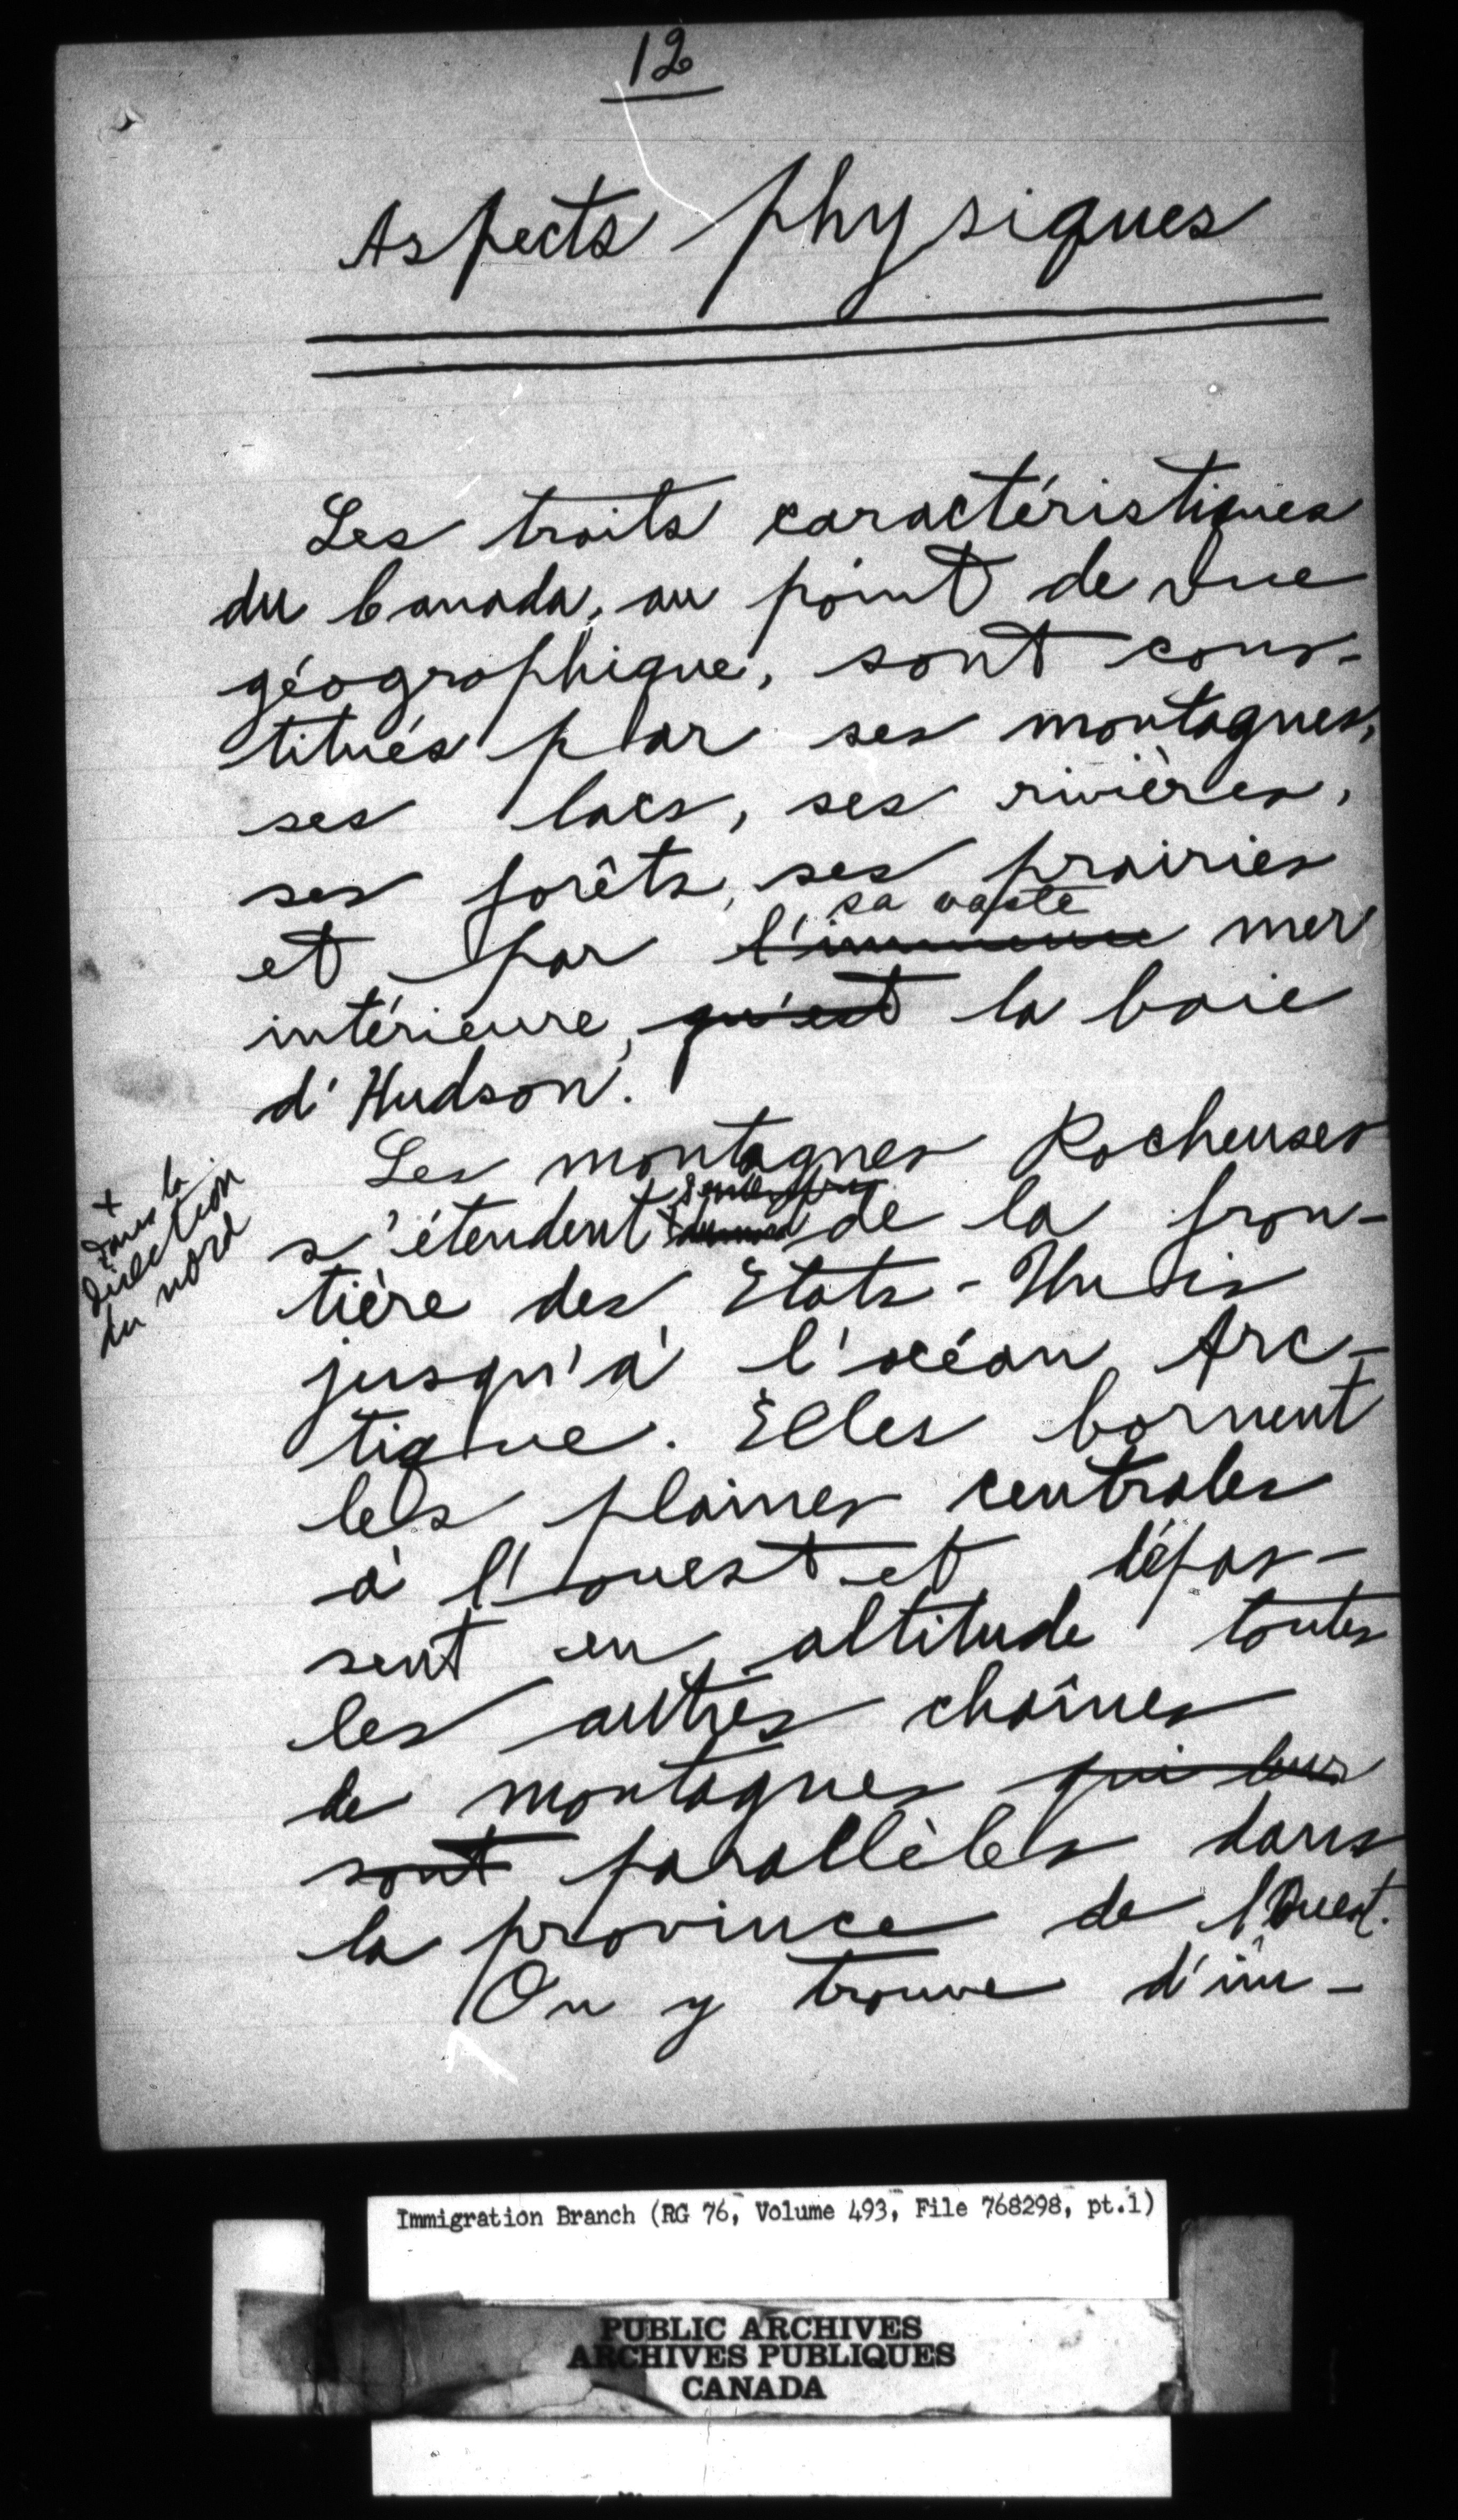 12
Aspects physiques
Les traits caractéristiques
du Canada, au point de vue
géographique, sont cons-
titués par ses montagnes,
ses lacs, ses rivières,
ses forêts, ses prairies
sa vaste
et par l'immense mer
intérieure, qu'est la baie
d'Hudson.
Les montagnes Rocheuses
s'étendent + de la fron-
+ dans la
direction
du nord
tière des Etats-Unis
jusqu'à l'océan Arc-
tique. Elles bornent
les plaines centrales
à l'ouest et dépas-
sent en altitude toutes
les autres chaînes
de montagnes qui leur
sont parallèles dans
la province de l'Ouest.
On y trouve d'im-
Immigration Branch (RG 76, Volume 493, File 768298, pt.1)
PUBLIC ARCHIVES
ARCHIVES PUBLIQUES
CANADA